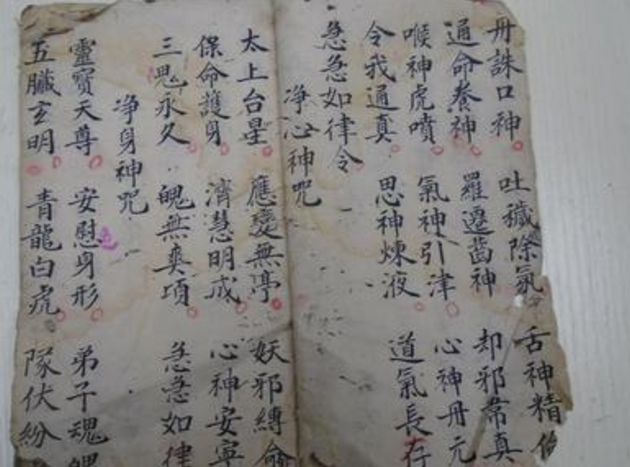 丹誅口神 吐穢除氛 舌神精
通命養神 羅遷齒神 却邪常真
喉神虎噴 氣神引津 心神丹元
令我通真 思神煉液 道氣長存
急急如律令
淨心神咒
太上台星 應變無亭 妖邪縛
保命護身 濟慧明戒 心神安寧
三鬼永久 魄無喪項 急急如律
淨身神咒
靈寶天尊 安慰身形 弟子魂魄
五臟玄明 青龍白虎 隊伏紛